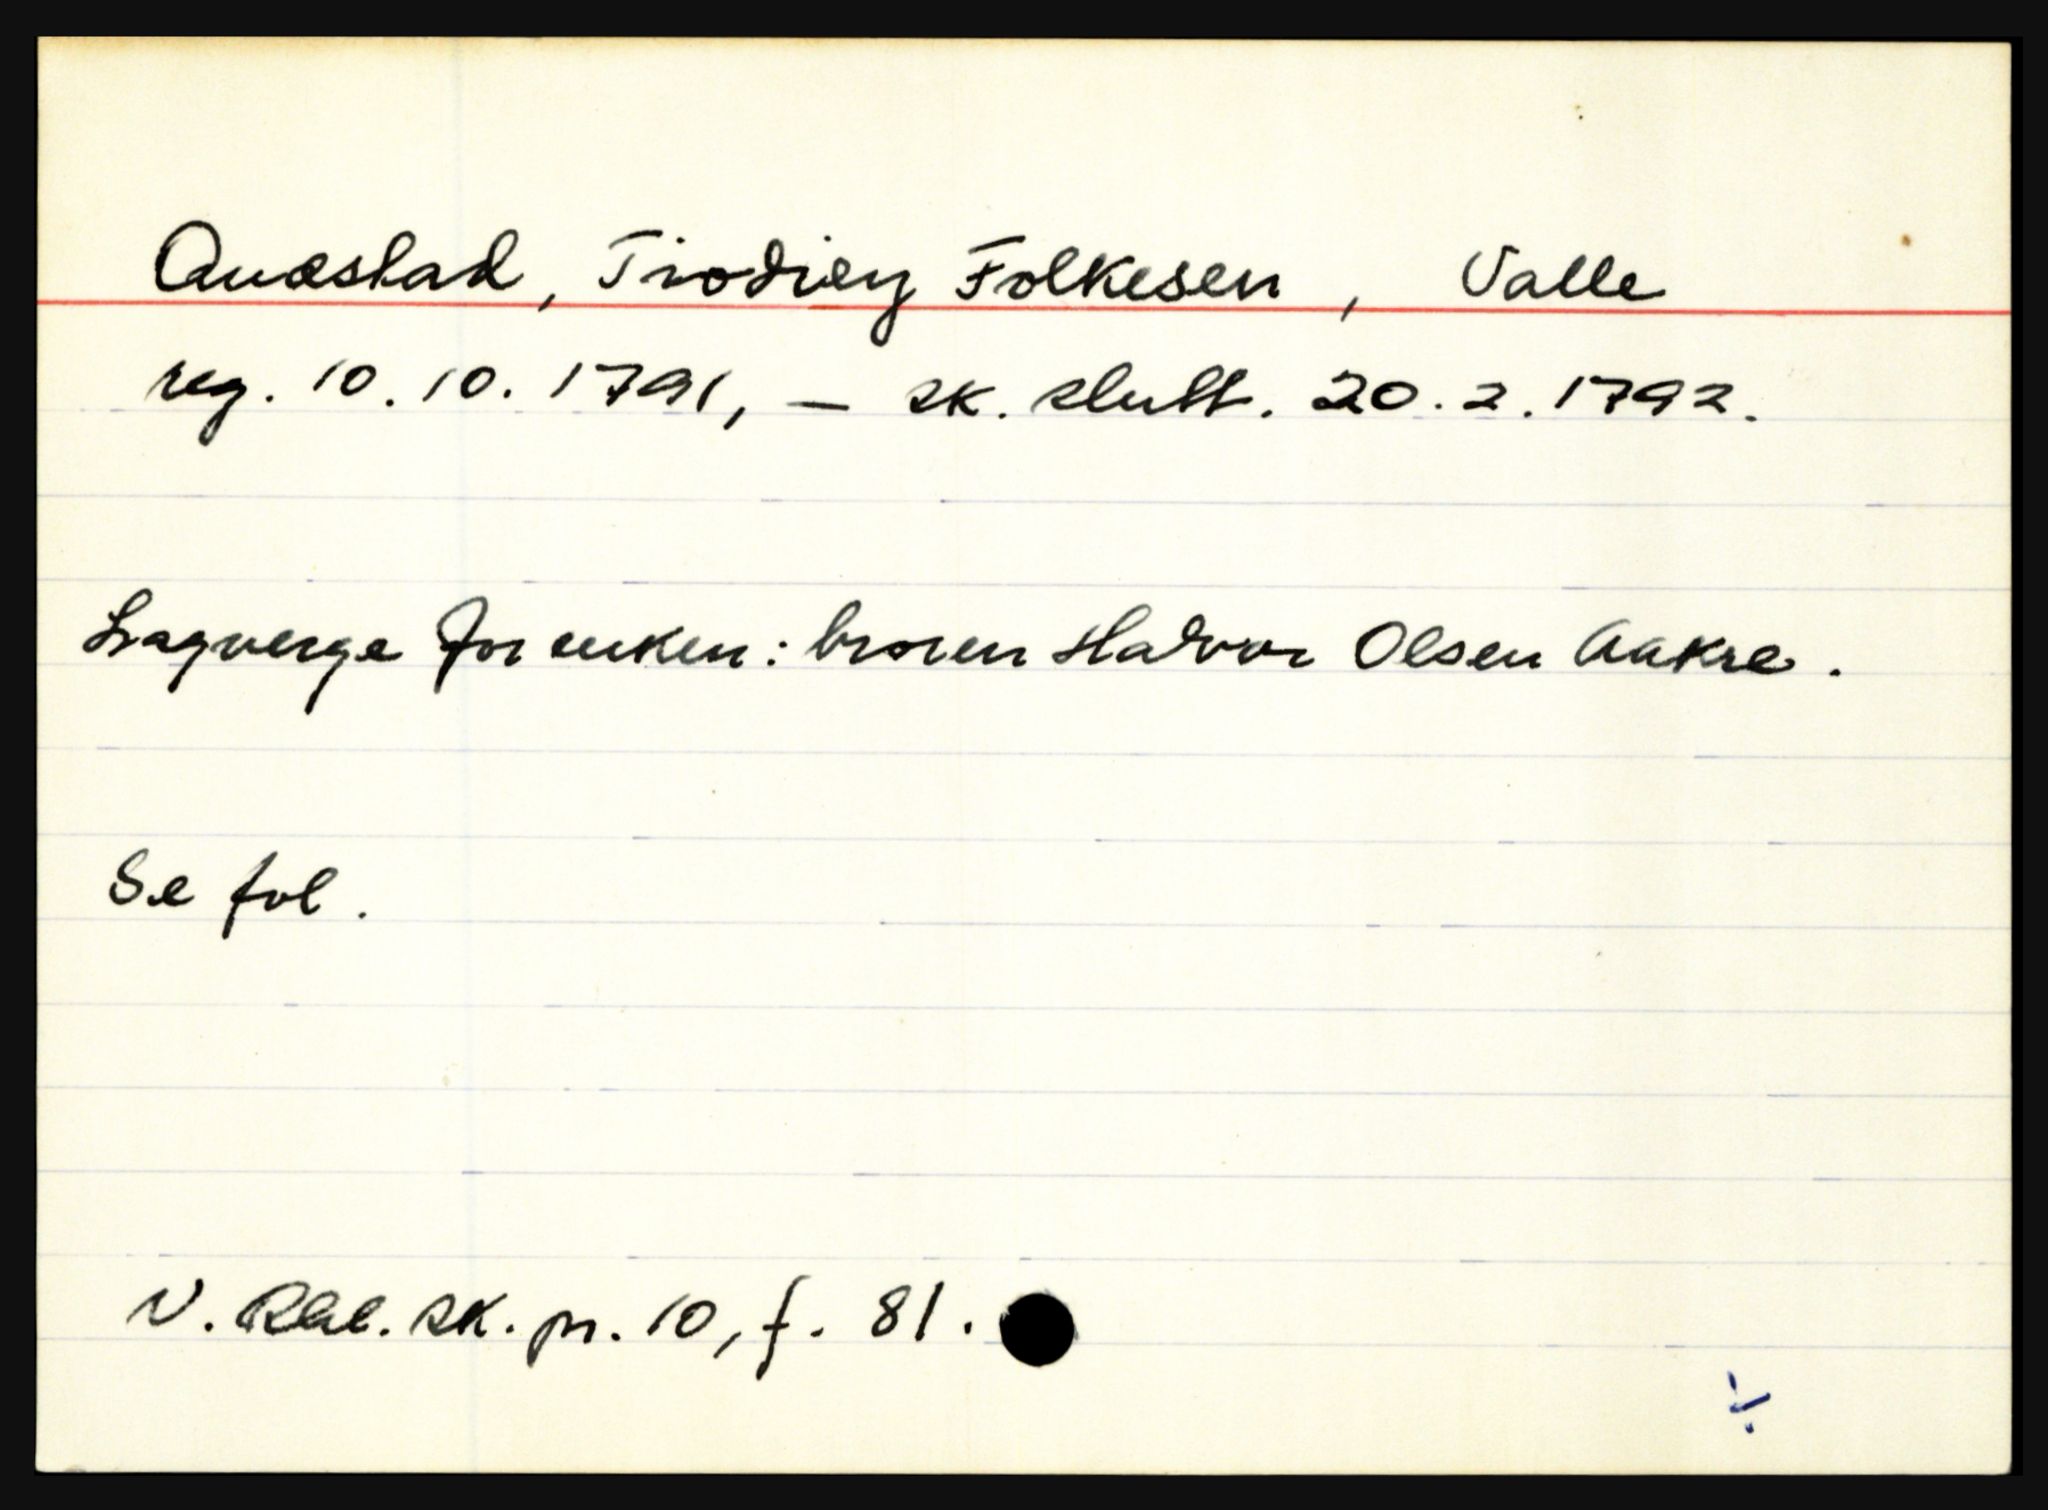 Quæstad, Tiodrey Folkesen, Valle
reg. 10.10.1791, - sk. slutt. 20.2.1792.
Lagverge for enken: broren Halvor Olsen Aakre.
Se fol.
V. Rbl. sk. pr. 10, f. 81.